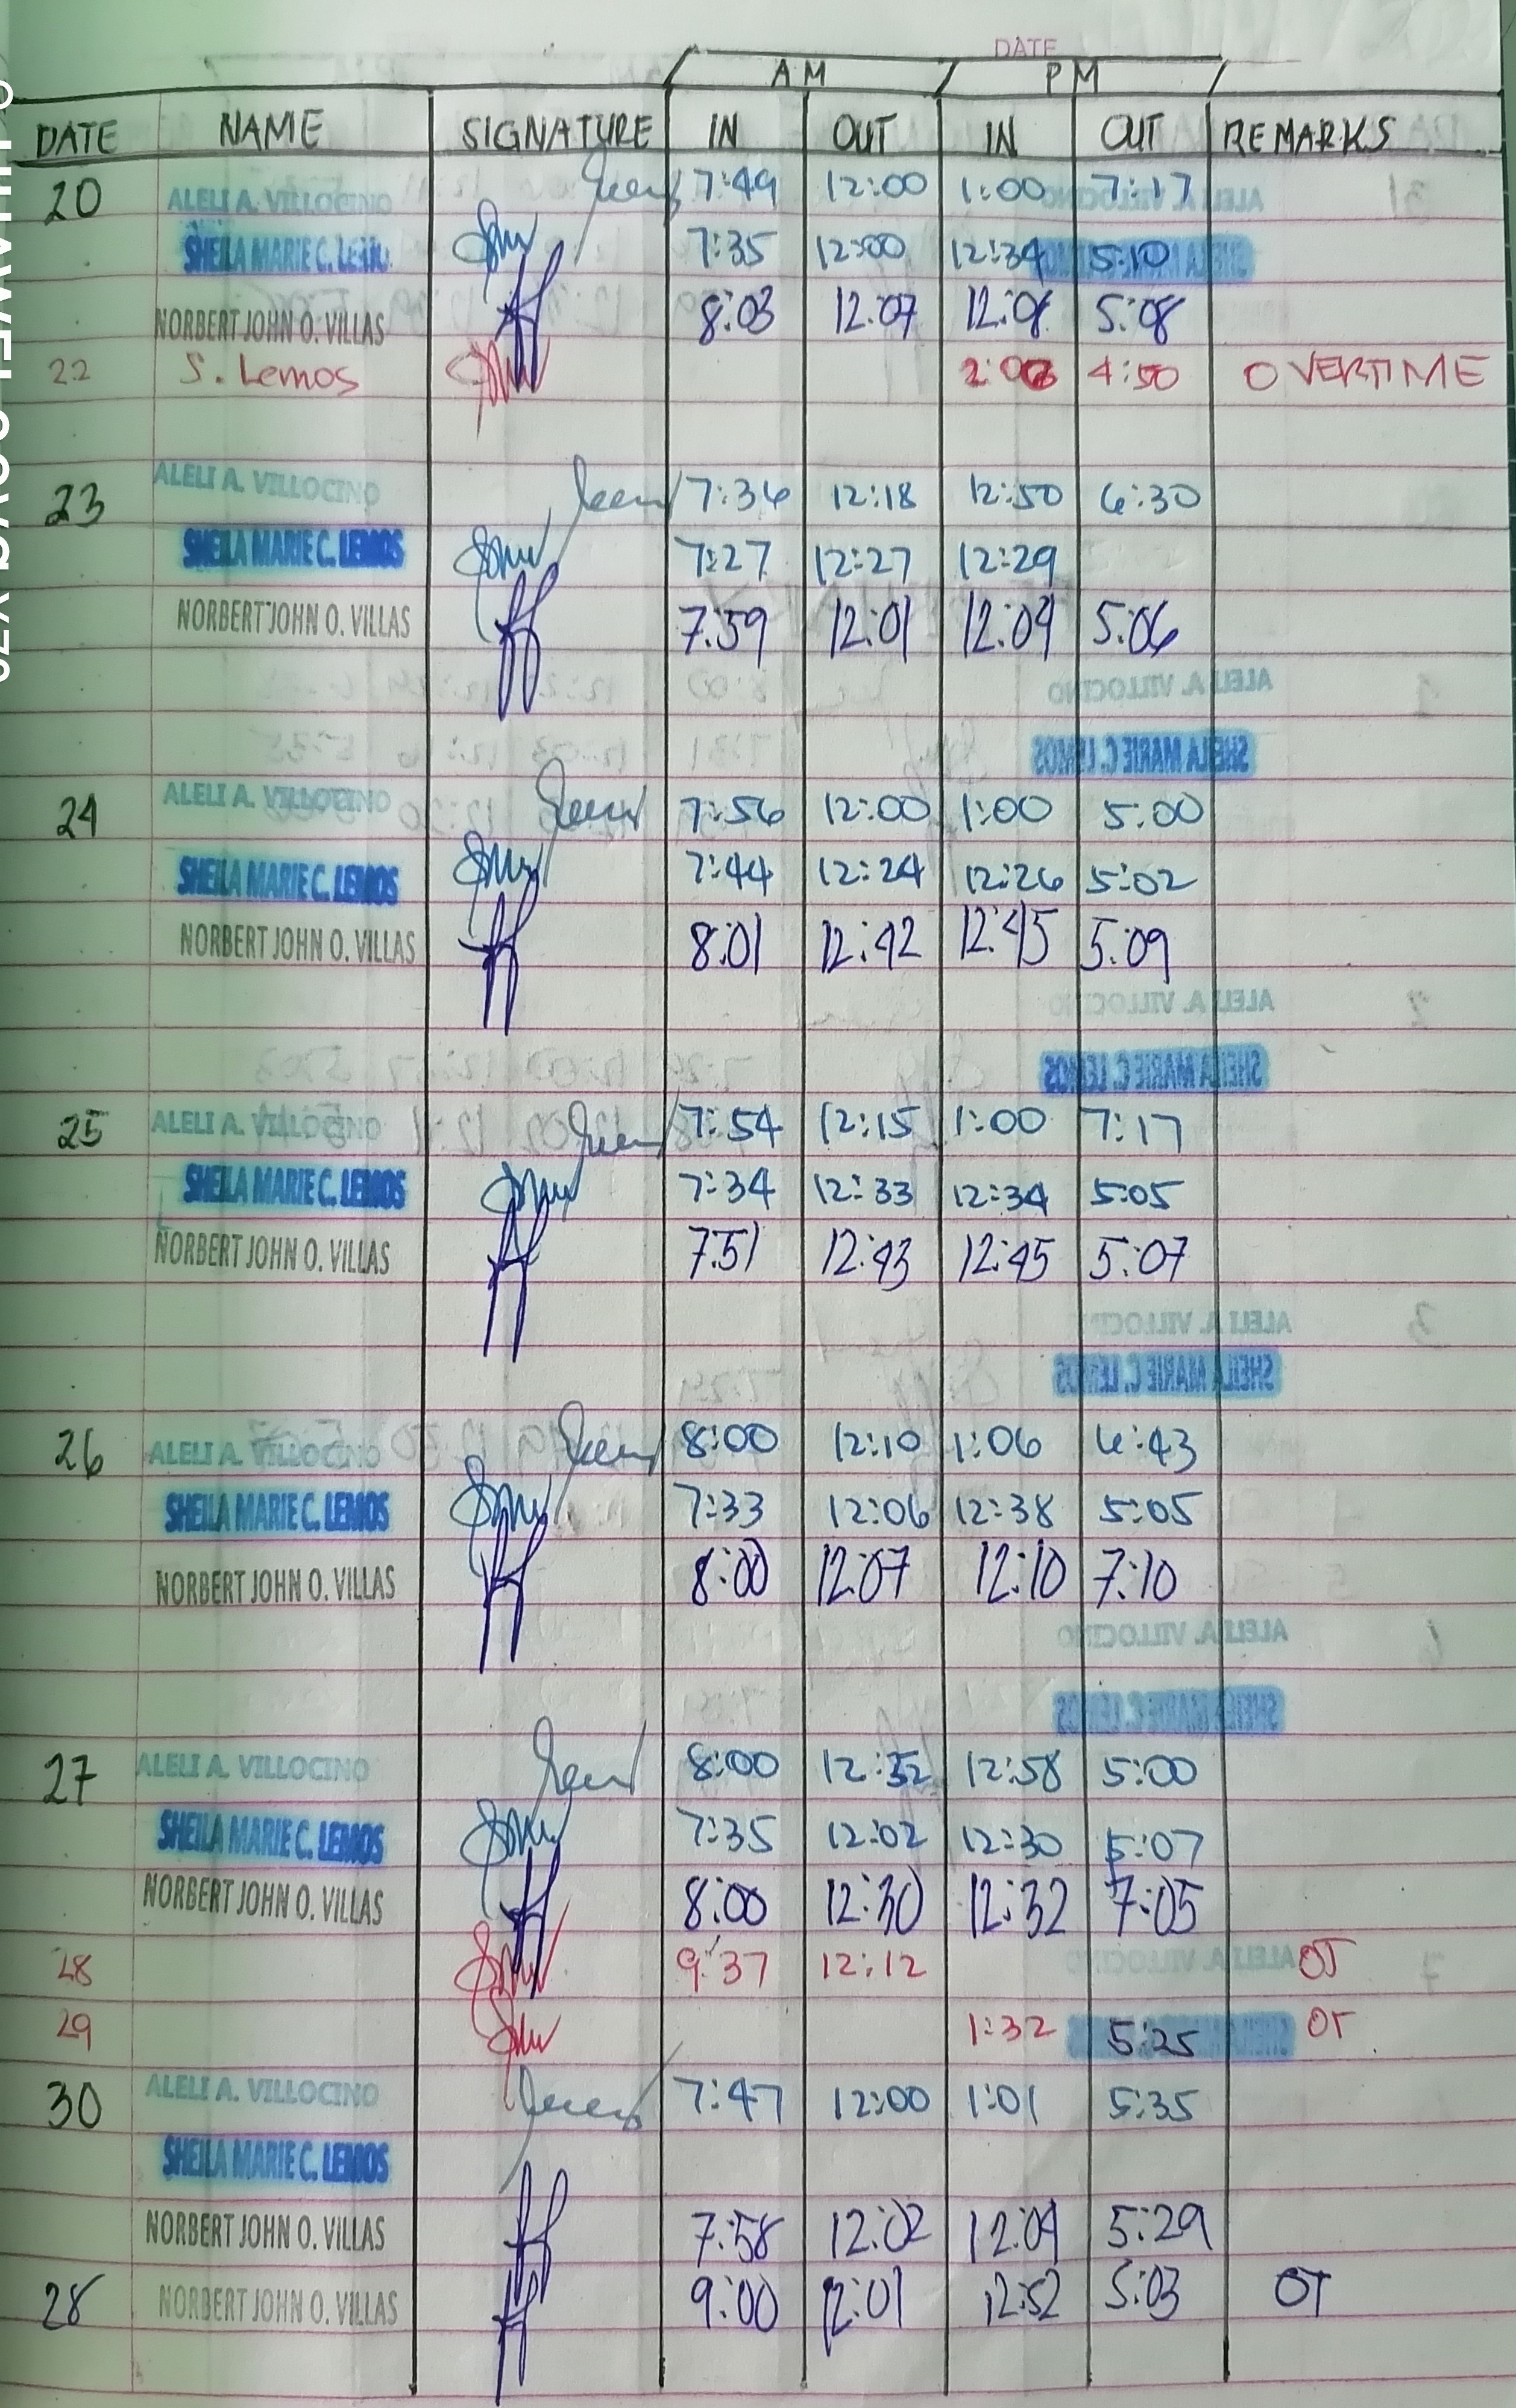 DATE
AM PM
DATE NAME SIGNATURE IN OUT IN OUT REMARKS
20 ALELI A. VILLOCINO 7:49 12:00 1:00 7:17
SHEILA MARIE C. LEMOS 7:35 12:00 12:34 5:10
NORBERT JOHN O. VILLAS 8:03 12:07 12:08 5:08
22 S. Lemos 2:06 4:50 OVERTIME
23 ALELI A. VILLOCINO 7:36 12:18 12:50 6:30
SHEILA MARIE C. LEMOS 7:27 12:27 12:29
NORBERT JOHN O. VILLAS 7:59 12:01 12:04 5:06
24 ALELI A. VILLOCINO 7:56 12:00 1:00 5:00
SHEILA MARIE C. LEMOS 7:44 12:24 12:26 5:02
NORBERT JOHN O. VILLAS 8:01 12:42 12:45 5:09
25 ALELI A. VILLOCINO 7:54 12:15 1:00 7:17
SHEILA MARIE C. LEMOS 7:34 12:33 12:34 5:05
NORBERT JOHN O. VILLAS 7:51 12:43 12:45 5:07
26 ALELI A. VILLOCINO 8:00 12:10 1:06 6:43
SHEILA MARIE C. LEMOS 7:33 12:06 12:38 5:05
NORBERT JOHN O. VILLAS 8:00 12:07 12:10 7:10
27 ALELI A. VILLOCINO 8:00 12:32 12:58 5:00
SHEILA MARIE C. LEMOS 7:35 12:02 12:30 5:07
NORBERT JOHN O. VILLAS 8:00 12:30 12:32 7:05
28 9:37 12:12 OT
29 1:32 5:25 OT
30 ALELI A. VILLOCINO 7:47 12:00 1:01 5:35
SHEILA MARIE C. LEMOS
NORBERT JOHN O. VILLAS 7:58 12:02 12:04 5:29
28 NORBERT JOHN O. VILLAS 9:00 12:01 12:52 5:03 OT